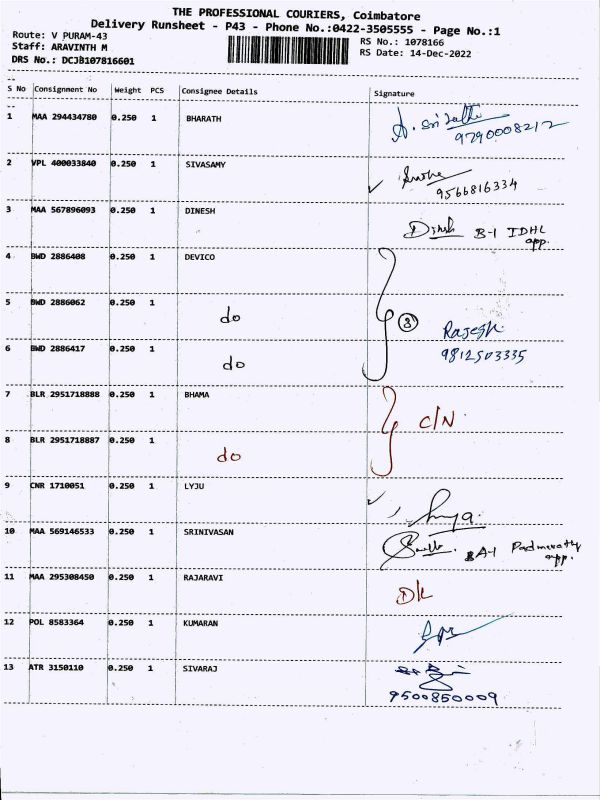 THE PROFESSIONAL COURIERS, Coimbatore
Delivery Runsheet - P43 - Phone No.:0422-3505555 - Page No.:1
Route: V PURAM-43
Staff: ARAVINTH M
DRS No.: DCJB107816601
RS No.: 1078166
RS Date: 14-Dec-2022
S No Consignment No Weight PCS Consignee Details Signature
1 MAA 294434780 0.250 1 BHARATH
9790008212
2 VPL 400033840 0.250 1 SIVASAMY
9566816334
3 MAA 567896093 0.250 1 DINESH Dinesh B-1 IDHL app.
4 BWD 2886408 0.250 1 DEVICO
5 BWD 2886062 0.250 1 do 3 Rajesh
9812503335
6 BWD 2886417 0.250 1 do
7 BLR 2951718888 0.250 1 BHAMA C/N
8 BLR 2951718887 0.250 1 do
9 CNR 1710051 0.250 1 LYJU
10 MAA 569146533 0.250 1 SRINIVASAN A-1 Padmavathy app.
11 MAA 295308450 0.250 1 RAJARAVI DL
12 POL 8583364 0.250 1 KUMARAN
13 ATR 3150110 0.250 1 SIVARAJ
9500850009